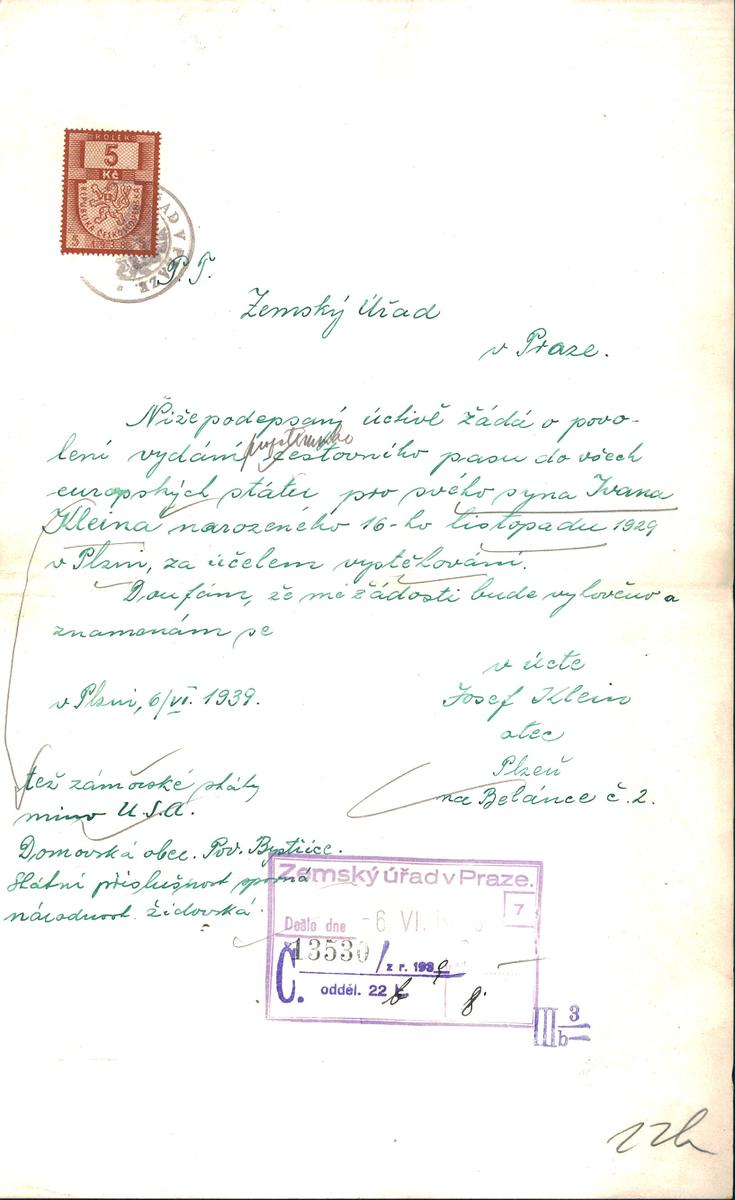 KOLEK
5
Kč
REPUBLIKA ČESKOSLOVENSKÁ
5 1938
ŘAD V PRAZE
P. T.
Zemský Úřad
v Praze.
Nížepodepsaný úctivě žádá o povo-
lení vydání cestovního pasu do všech
europských státu pro svého syna Ivana
Kleina narozeného 16-ho listopadu 1929
v Plzni, za účelem vystěhování.
Doufám, že mé žádosti bude vyhověno a
znamenám se
v úctě
v Plzni, 6/VI. 1939.
Josef Klein
otec
Plzeň
na Belánce č. 2.
též zámořské státy
mimo U.S.A.
Domovská obec. Pov. Bystřice.
Státní příslušnost sporná
národnost židovská.
Zemský úřad v Praze.
7
Došlo dne -6 VI.
Č. 13530 / z r. 1939
odděl. 22 b 8
III 3
b
22b